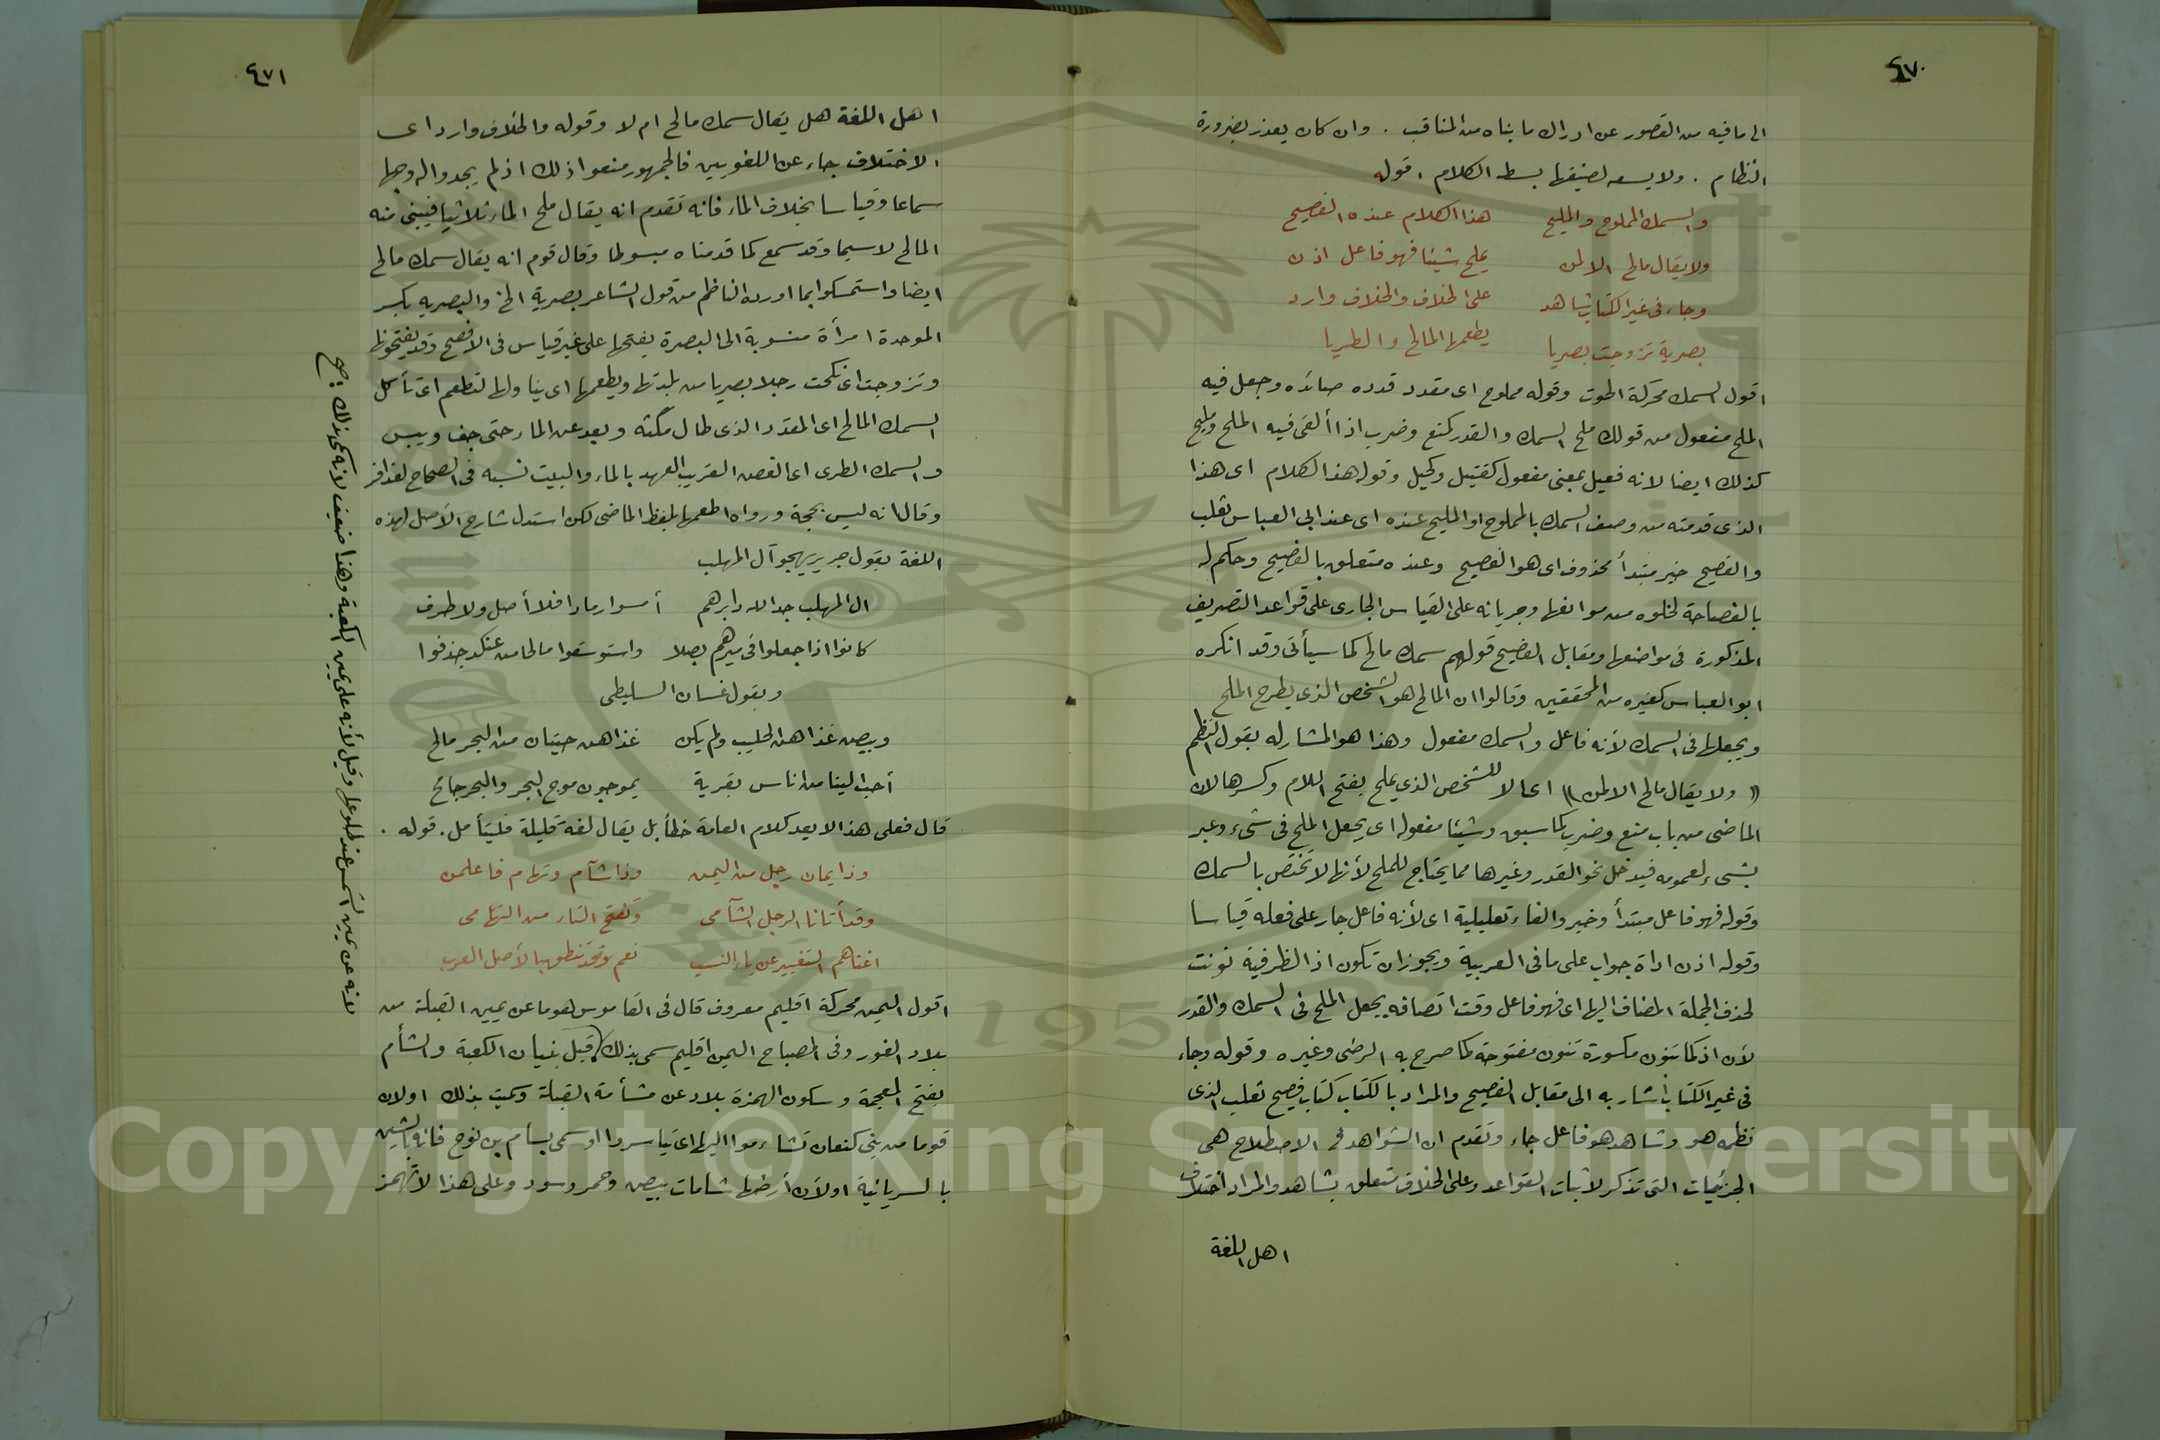 ٤٧٠
الى ما فيه من القصور عن ادراك ما بناه من المناقب . وان كان يعذر بضرورة
النظام . ولا يسع لضيقها بسط الكلام ، قوله
والسمك المملوح والمليح هذا الكلام عنده الفصيح
ولا يقال مالح الا لمن يملح شيئا فهو فاعل اذن
وجاء فى غير الكتاب شاهد على الخلاف والخلاف وارد
بصرية تزوجت بصريا يطعمها المالح والطريا
اقول السمك محركة الحوت وقوله مملوح اى مقدد قدده صائده وجعل فيه
الملح مفعول من قولك ملح السمك والقدر كنع وضرب اذا ألقى فيه الملح ومليح
كذلك ايضا لانه فعيل بمعنى مفعول كقتيل وكحيل وقوله هذا الكلام اى هذا
الذى قدمته من وصف السمك بالمملوح او المليح عنده اى عند ابى العباس ثعلب
والفصيح خبر مبتدأ محذوف اى هو الفصيح وعنده متعلق بالفصيح وحكم له
بالفصاحة لخلوه من موانعها وجريانه على القياس الجارى على قواعد التصريف
المذكورة فى مواضعها ومقابل الفصيح قولهم سمك مالح كما سيأتى وقد انكره
ابو العباس كغيره من المحققين وقالوا ان المالح هو الشخص الذى يطرح الملح
ويجعلها فى السمك لأنه فاعل والسمك مفعول وهذا هو المشار له بقول النظم
« ولا يقال مالح الا لمن » اى الا للشخص الذى يملح بفتح اللام وكسرها لان
الماضى من باب منع وضرب كما سبق وشيئا مفعوله اى يجعل الملح فى شىء وعبر
بشىء لعمومه فيدخل نحو القدر وغيرها مما يحتاج للملح لأنها لا تختص بالسمك
وقوله فهو فاعل مبتدأ وخبر والفاء تعليلية اى لأنه فاعل جار على فعله قياسا
وقوله اذن اداة جواب على ما فى العربية ويجوز ان تكون اذ الظرفية نونت
لحذف الجملة المضاف اليها اى فهو فاعل وقت اتصافه بجعل الملح فى السمك والقدر
لأن اذ كما تنون مكسورة تنون مفتوحة كما صرح به الرضى وغيره وقوله وجاء
فى غير الكتاب أشار به الى مقابل الفصيح والمراد بالكتاب كتاب فصيح ثعلب الذى
نظمه هو وشاهد هو فاعل جاء وتقدم ان الشواهد فى الاصطلاح هى
الجزئيات التى تذكر لاثبات القواعد وعلى الخلاف متعلق بشاهد والمراد اختلاف
اهل اللغة
٤٧١
اهل اللغة هل يقال سمك مالح ام لا وقوله والخلاف وارد اى
الاختلاف جاء عن اللغويين فالجمهور منعوا ذلك اذ لم يجدوا له وجها
سماعا وقياسا بخلاف الماء فانه تقدم انه يقال ملح الماء ثلاثيا فيبنى منه
المالح لاسيما وقد سمع كما قدمناه مبسوطا وقال قوم انه يقال سمك مالح
ايضا واستمسكوا بما اورده الناظم من قول الشاعر بصرية الخ والبصريه بكسر
الموحدة امرأة منسوبة الى البصرة بفتحها على غير قياس فى الافصح وقد يفتحونها
وتزوجت اى نكحت رجلا بصريا من بلدتها ويطعمها اى ينا ولها لتطعم اى تأكل
السمك المالح اى المقدد الذى طال مكثه وبعد عن الماء حتى جف ويبس
والسمك الطرى اى الغصن القريب العهد بالماء والبيت نسبه فى الصحاح لعذافر
وقال انه ليس بحجة ورواه اطعمها بلفظ الماضى لكن استدل شارح الأصل لهذه
اللغة بقول جرير يهجو آل المهلب
ال المهلب جد الله دابرهم أمسوا رمادا فلا أصل ولا طرف
كانوا اذا جعلوا فى صيرهم بصلا واستوسقوا مالحا من كنعد جذفوا
وبقول غسان السليطى
وبيض غذاهن الحليب ولم يكن غذاهن حيتان من البحر مالح
أحب الينا من اناس بقرية يموجون موج البحر والبحر جامح
قال فعلى هذا لا يعد كلام العامة خطأ بل يقال لغة قليلة فليتأمل . قوله .
وذا يمان رجل من اليمن وذا شآم وتهام فاعلمن
وقد أتانا الرجل الشآمى وتفتح التاء من التهامى
اغناهم التغيير عن ياء النسب نعم وقد تنطق بالأصل العرب
اقول اليمن محركة اقليم معروف قال فى القاموس هو ما عن يمين القبلة من
بلاد الغور وفى المصباح اليمن اقليم سمى بذلك قبل بنيان الكعبة والشأم
بفتح المعجمة وسكون الهمزة بلاد عن مشأمة القبلة وسميت بذلك اولان
قوما من بنى كنعان تشاءموا اليها اى تياسروا او سمى بسام بن نوح فانه بالشين
بالسريانية اولأن أرضها شامات بيض وحمر وسود وعلى هذا لا تهمز
لانه عن يمين الشمس عند طلوعها وقيل لأنه على يمين الكعبة وهذا ضعيف لأنه سمى بذلك صح
Copyright © King Saud University
1957